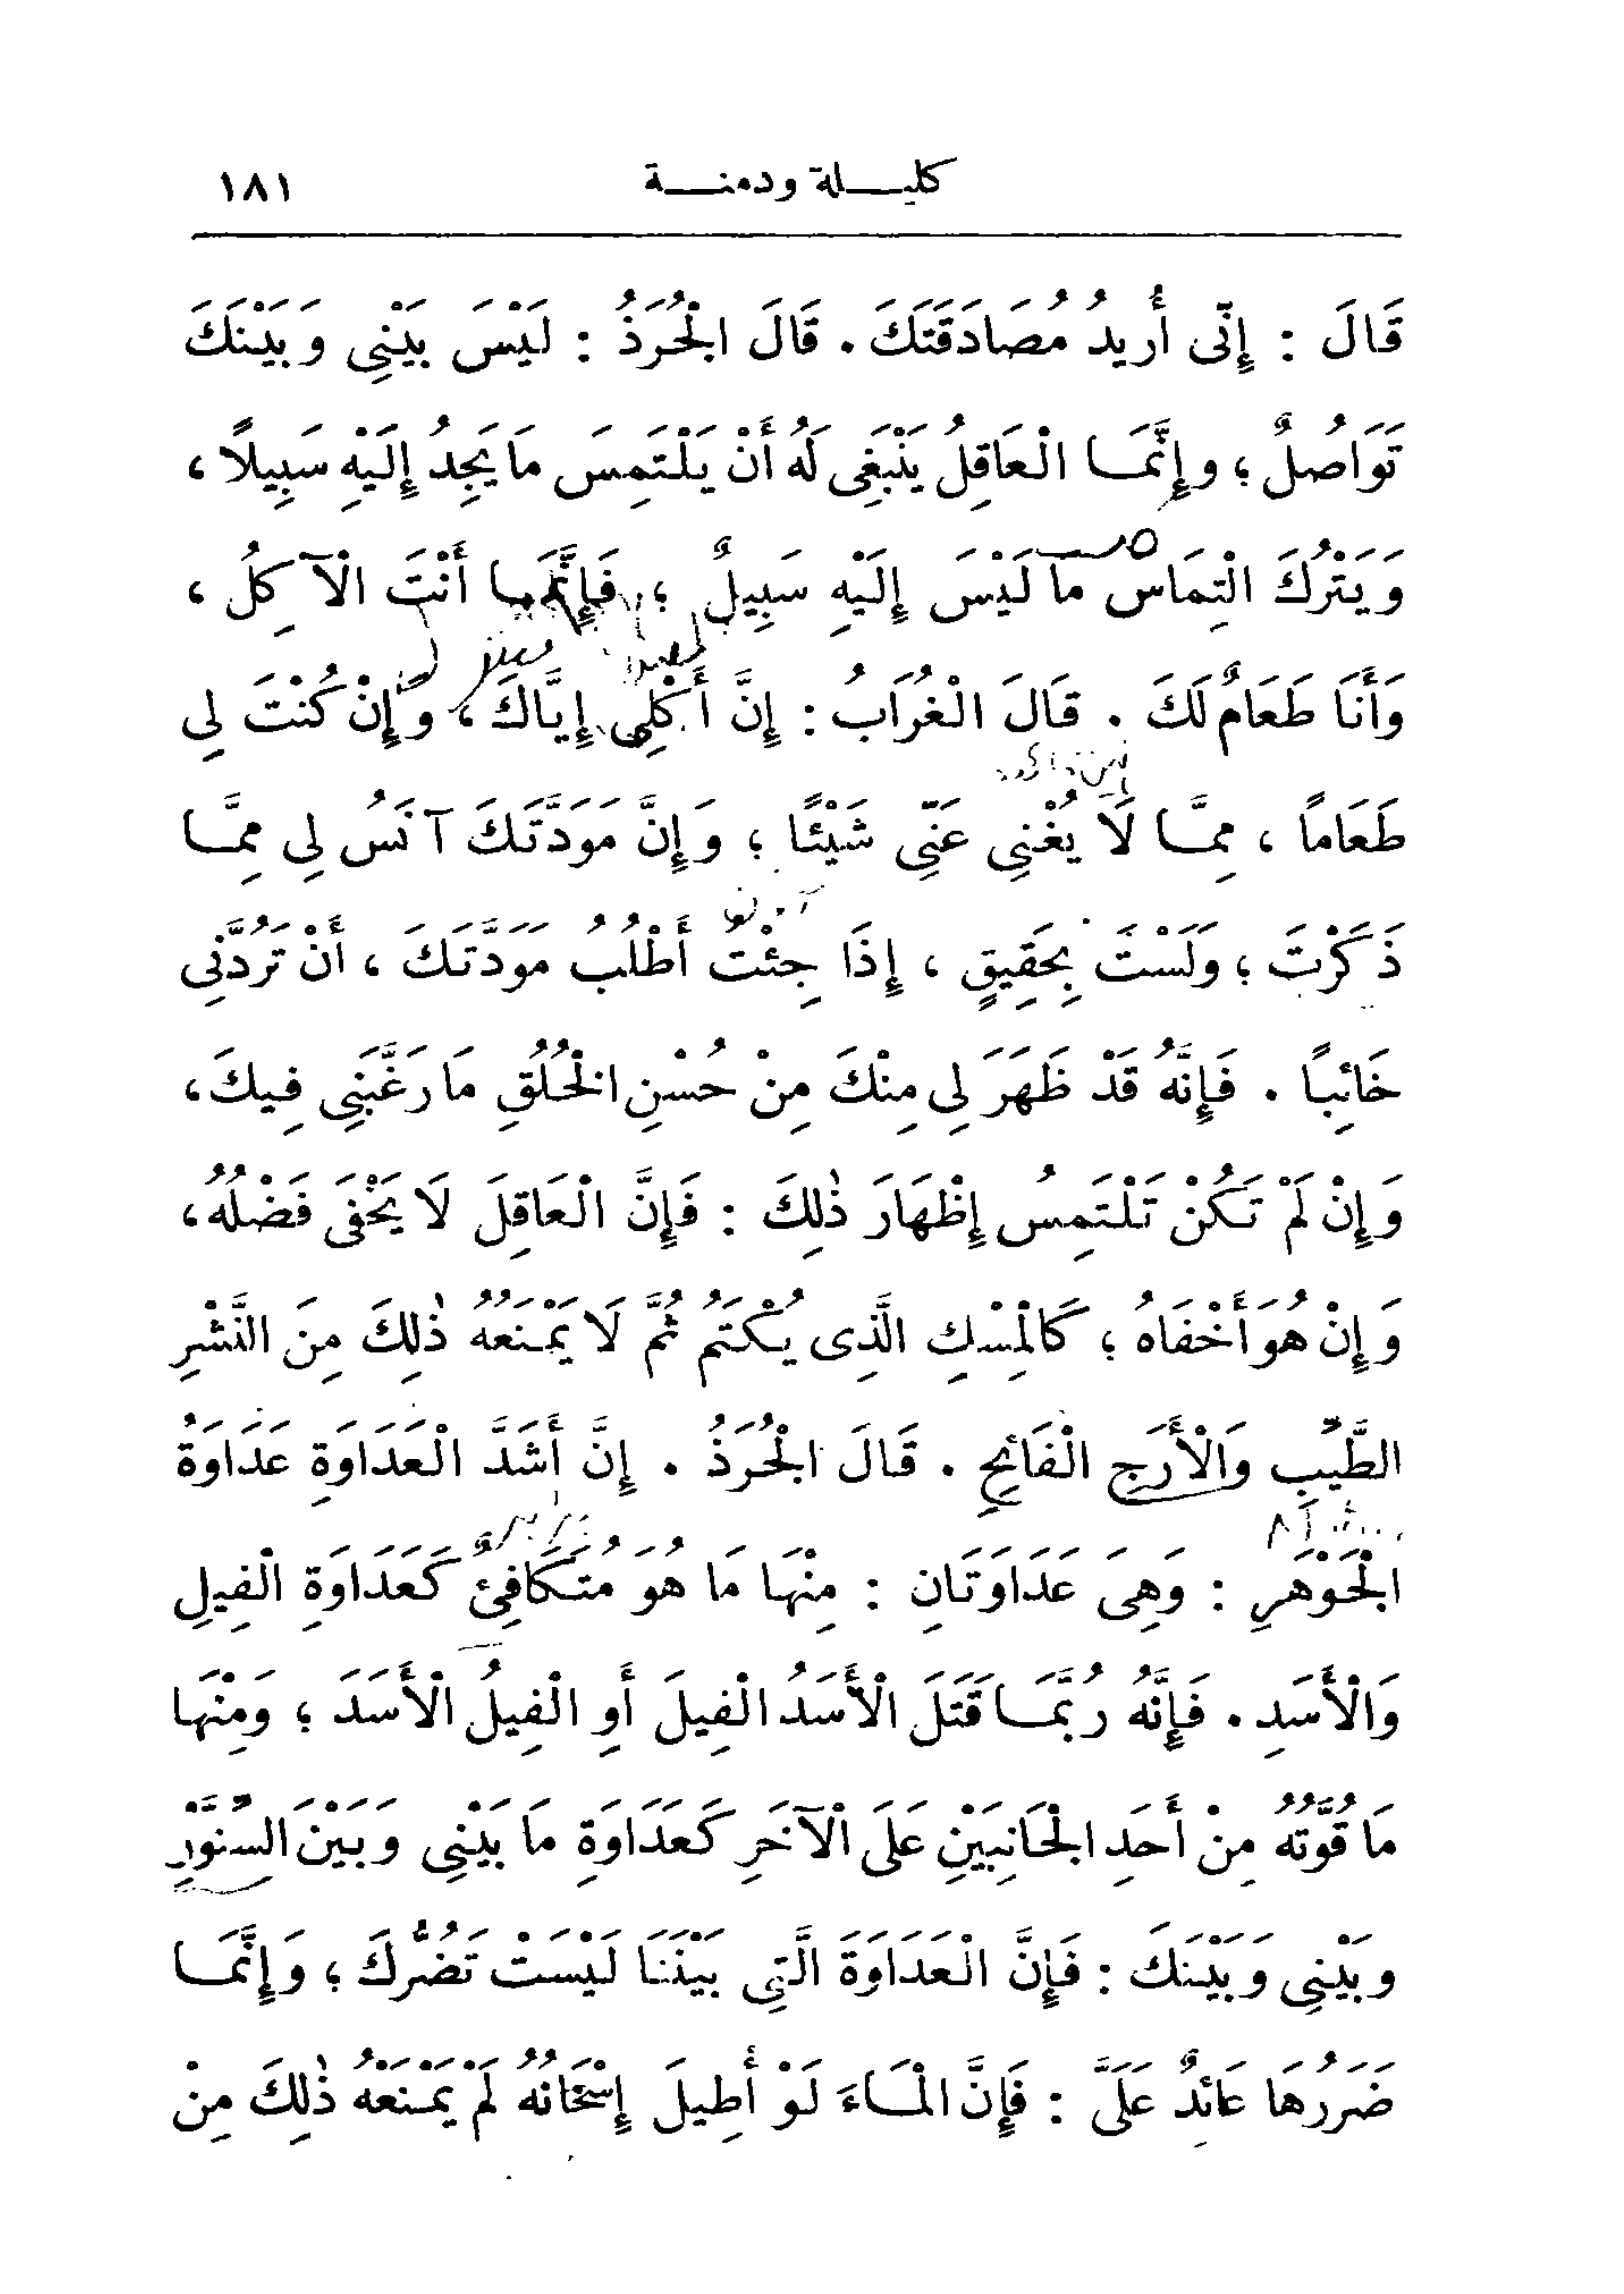 كليلة ودمنة ١٨١
قَالَ : إِنِّى أُرِيدُ مُصَادَقَتَكَ . قَالَ الْجُرَذُ : لَيْسَ بَيْنِى وَبَيْنَكَ
تَوَاصُلٌ ؛ وإِنَّمَا الْعَاقِلُ يَنْبَغِى لَهُ أَنْ يَلْتَمِسَ مَا يَجِدُ إِلَيْهِ سَبِيلاً ،
وَيَتْرُكَ الْتِمَاسَ مَا لَيْسَ إِلَيْهِ سَبِيلٌ ؛ فَإِنَّمَا أَنْتَ الْآكِلُ ،
وَأَنَا طَعَامٌ لَكَ . قَالَ الْغُرَابُ : إِنَّ أَكْلِى إِيَّاكَ ، وَإِنْ كُنْتَ لِى
طَعَاماً ، مِمَّا لَا يُغْنِى عَنِّى شَيْئًا ؛ وَإِنَّ مَوَدَّتَكَ آنَسُ لِى مِمَّا
ذَكَرْتَ ؛ وَلَسْتَ بِحَقِيقٍ ، إِذَا جِئْتُ أَطْلُبُ مَوَدَّتَكَ ، أَنْ تَرُدَّنِى
خَائِباً . فَإِنَّهُ قَدْ ظَهَرَ لِى مِنْكَ مِنْ حُسْنِ الْخُلُقِ مَا رَغَّبَنِى فِيكَ ،
وَإِنْ لَمْ تَكُنْ تَلْتَمِسُ إِظْهَارَ ذٰلِكَ : فَإِنَّ الْعَاقِلَ لَا يَخْفَى فَضْلُهُ ،
وَإِنْ هُوَ أَخْفَاهُ ؛ كَالْمِسْكِ الَّذِى يُكْتَمُ ثُمَّ لَا يَمْنَعُهُ ذٰلِكَ مِنَ النَّشْرِ
الطَّيِّبِ وَالْأَرَجِ الْفَائِحِ . قَالَ الْجُرَذُ . إِنَّ أَشَدَّ الْعَدَاوَةِ عَدَاوَةُ
الْجَوْهَرِ : وَهِىَ عَدَاوَتَانِ : مِنْهَا مَا هُوَ مُتَكَافِئٌ كَعَدَاوَةِ الْفِيلِ
وَالْأَسَدِ . فَإِنَّهُ رُبَّمَا قَتَلَ الْأَسَدُ الْفِيلَ أَوِ الْفِيلُ الْأَسَدَ ؛ وَمِنْهَا
مَا قُوَّتُهُ مِنْ أَحَدِ الْجَانِبَيْنِ عَلَى الْآخَرِ كَعَدَاوَةِ مَا بَيْنِى وَبَيْنَ السِّنَّوْرِ
وبَيْنِى وَبَيْنَكَ : فَإِنَّ الْعَدَاوَةَ الَّتِى بَيْنَنَا لَيْسَتْ تَضُرُّكَ ؛ وَإِنَّمَا
ضَرَرُهَا عَائِدٌ عَلَىَّ : فَإِنَّ الْمَاءَ لَوْ أُطِيلَ إِسْخَانُهُ لَمْ يَمْنَعْهُ ذٰلِكَ مِنْ